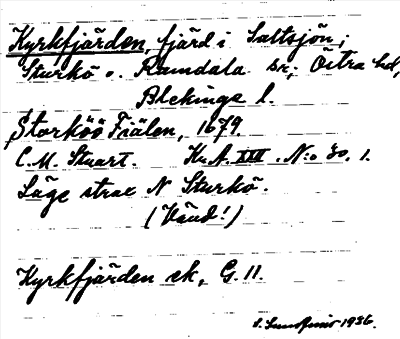 Kyrkfjärden, fjärd i Saltsjön;
Sturkö o. Ramdala sn; Östra hd,
Blekinge l.
Storköö Fiälen, 1679.
C. M. Stuart. Kr.A. XIII. N:o 30. 1.
Läge strax N Sturkö.
(Vänd!)
Kyrkfjärden ek, G. 11.
1936.